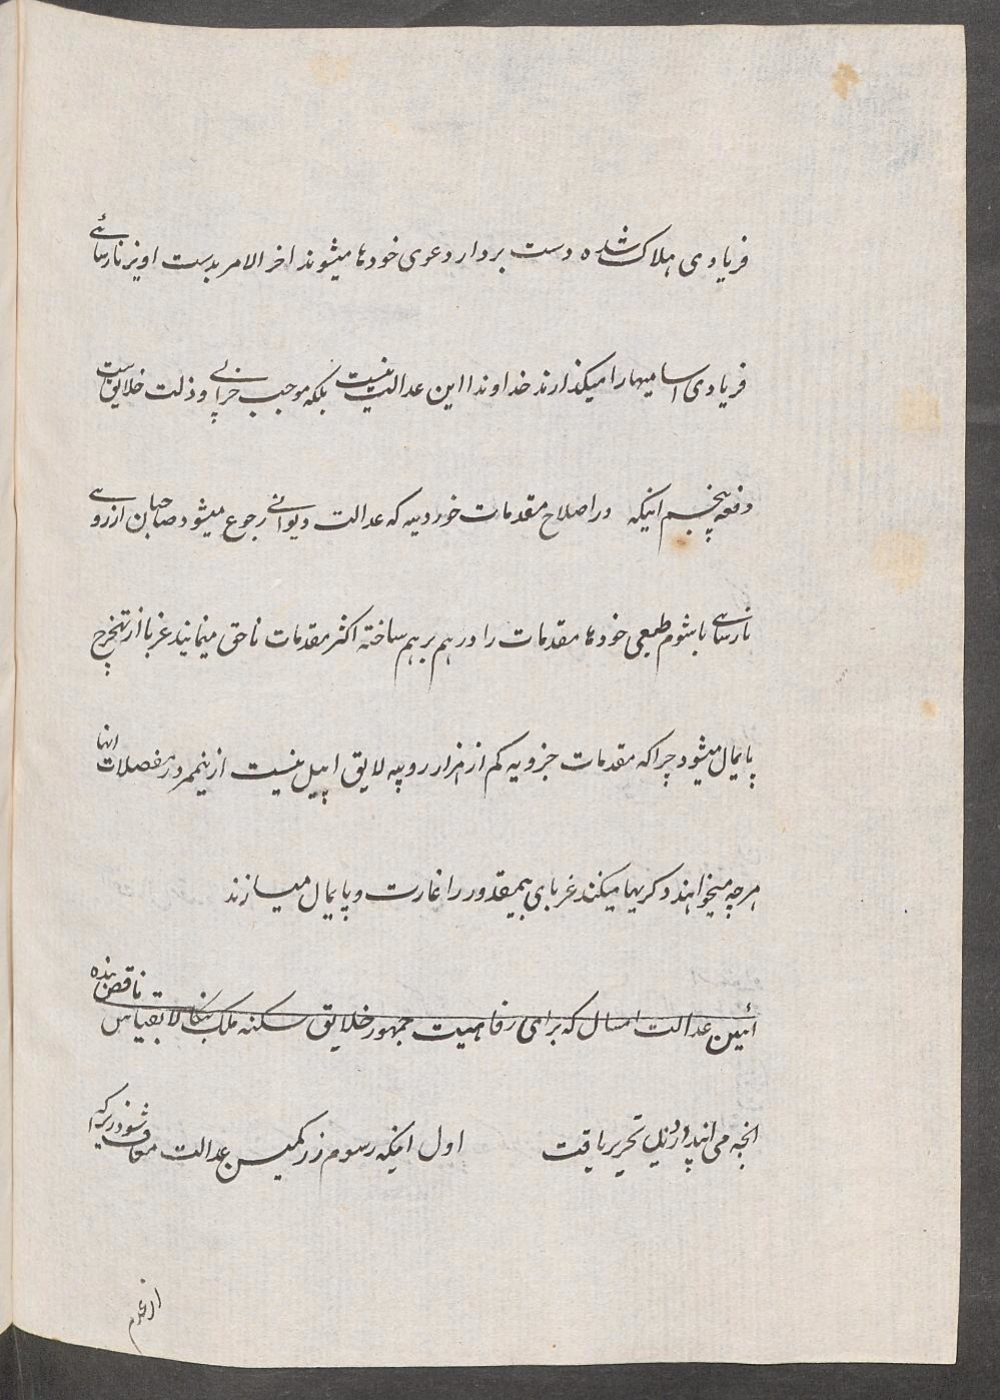 فریادی هلاک شده دست بردار دعوی خودها میشوند اخر الامر بدست اویز نارسائی
فریادی اسامیها را میگذارند خداوندا این عدالت نیست بلکه موجب خرابی و ذلت خلایق ست
دفعه پنجم اینکه در اصلاح مقدمات خوردیه که عدالت دیوانی رجوع میشود صاحبان از روی
نارسائی یا بشوم طمعی خودها مقدمات را درهم برهم ساخته اکثر مقدمات ناحق مینمایند غربا از
پایمال میشود چرا که مقدمات جزویه کم از هزار روپیه لایق اپیل نیست ازینممر در مفصلات انها
هرچه میخواهند دکریها میکنند غربای بیمقدور را غارت و پایمال میسازند
ائین عدالت امسال که برای رفاهیت جمهور خلایق سکنه ملک بنکالا بقیاس ناقص بنده
انچه می اید در ذیل تحریر یافت اول اینکه رسوم زر کمیسن عدالت معاف شود زیراکه
از عدم